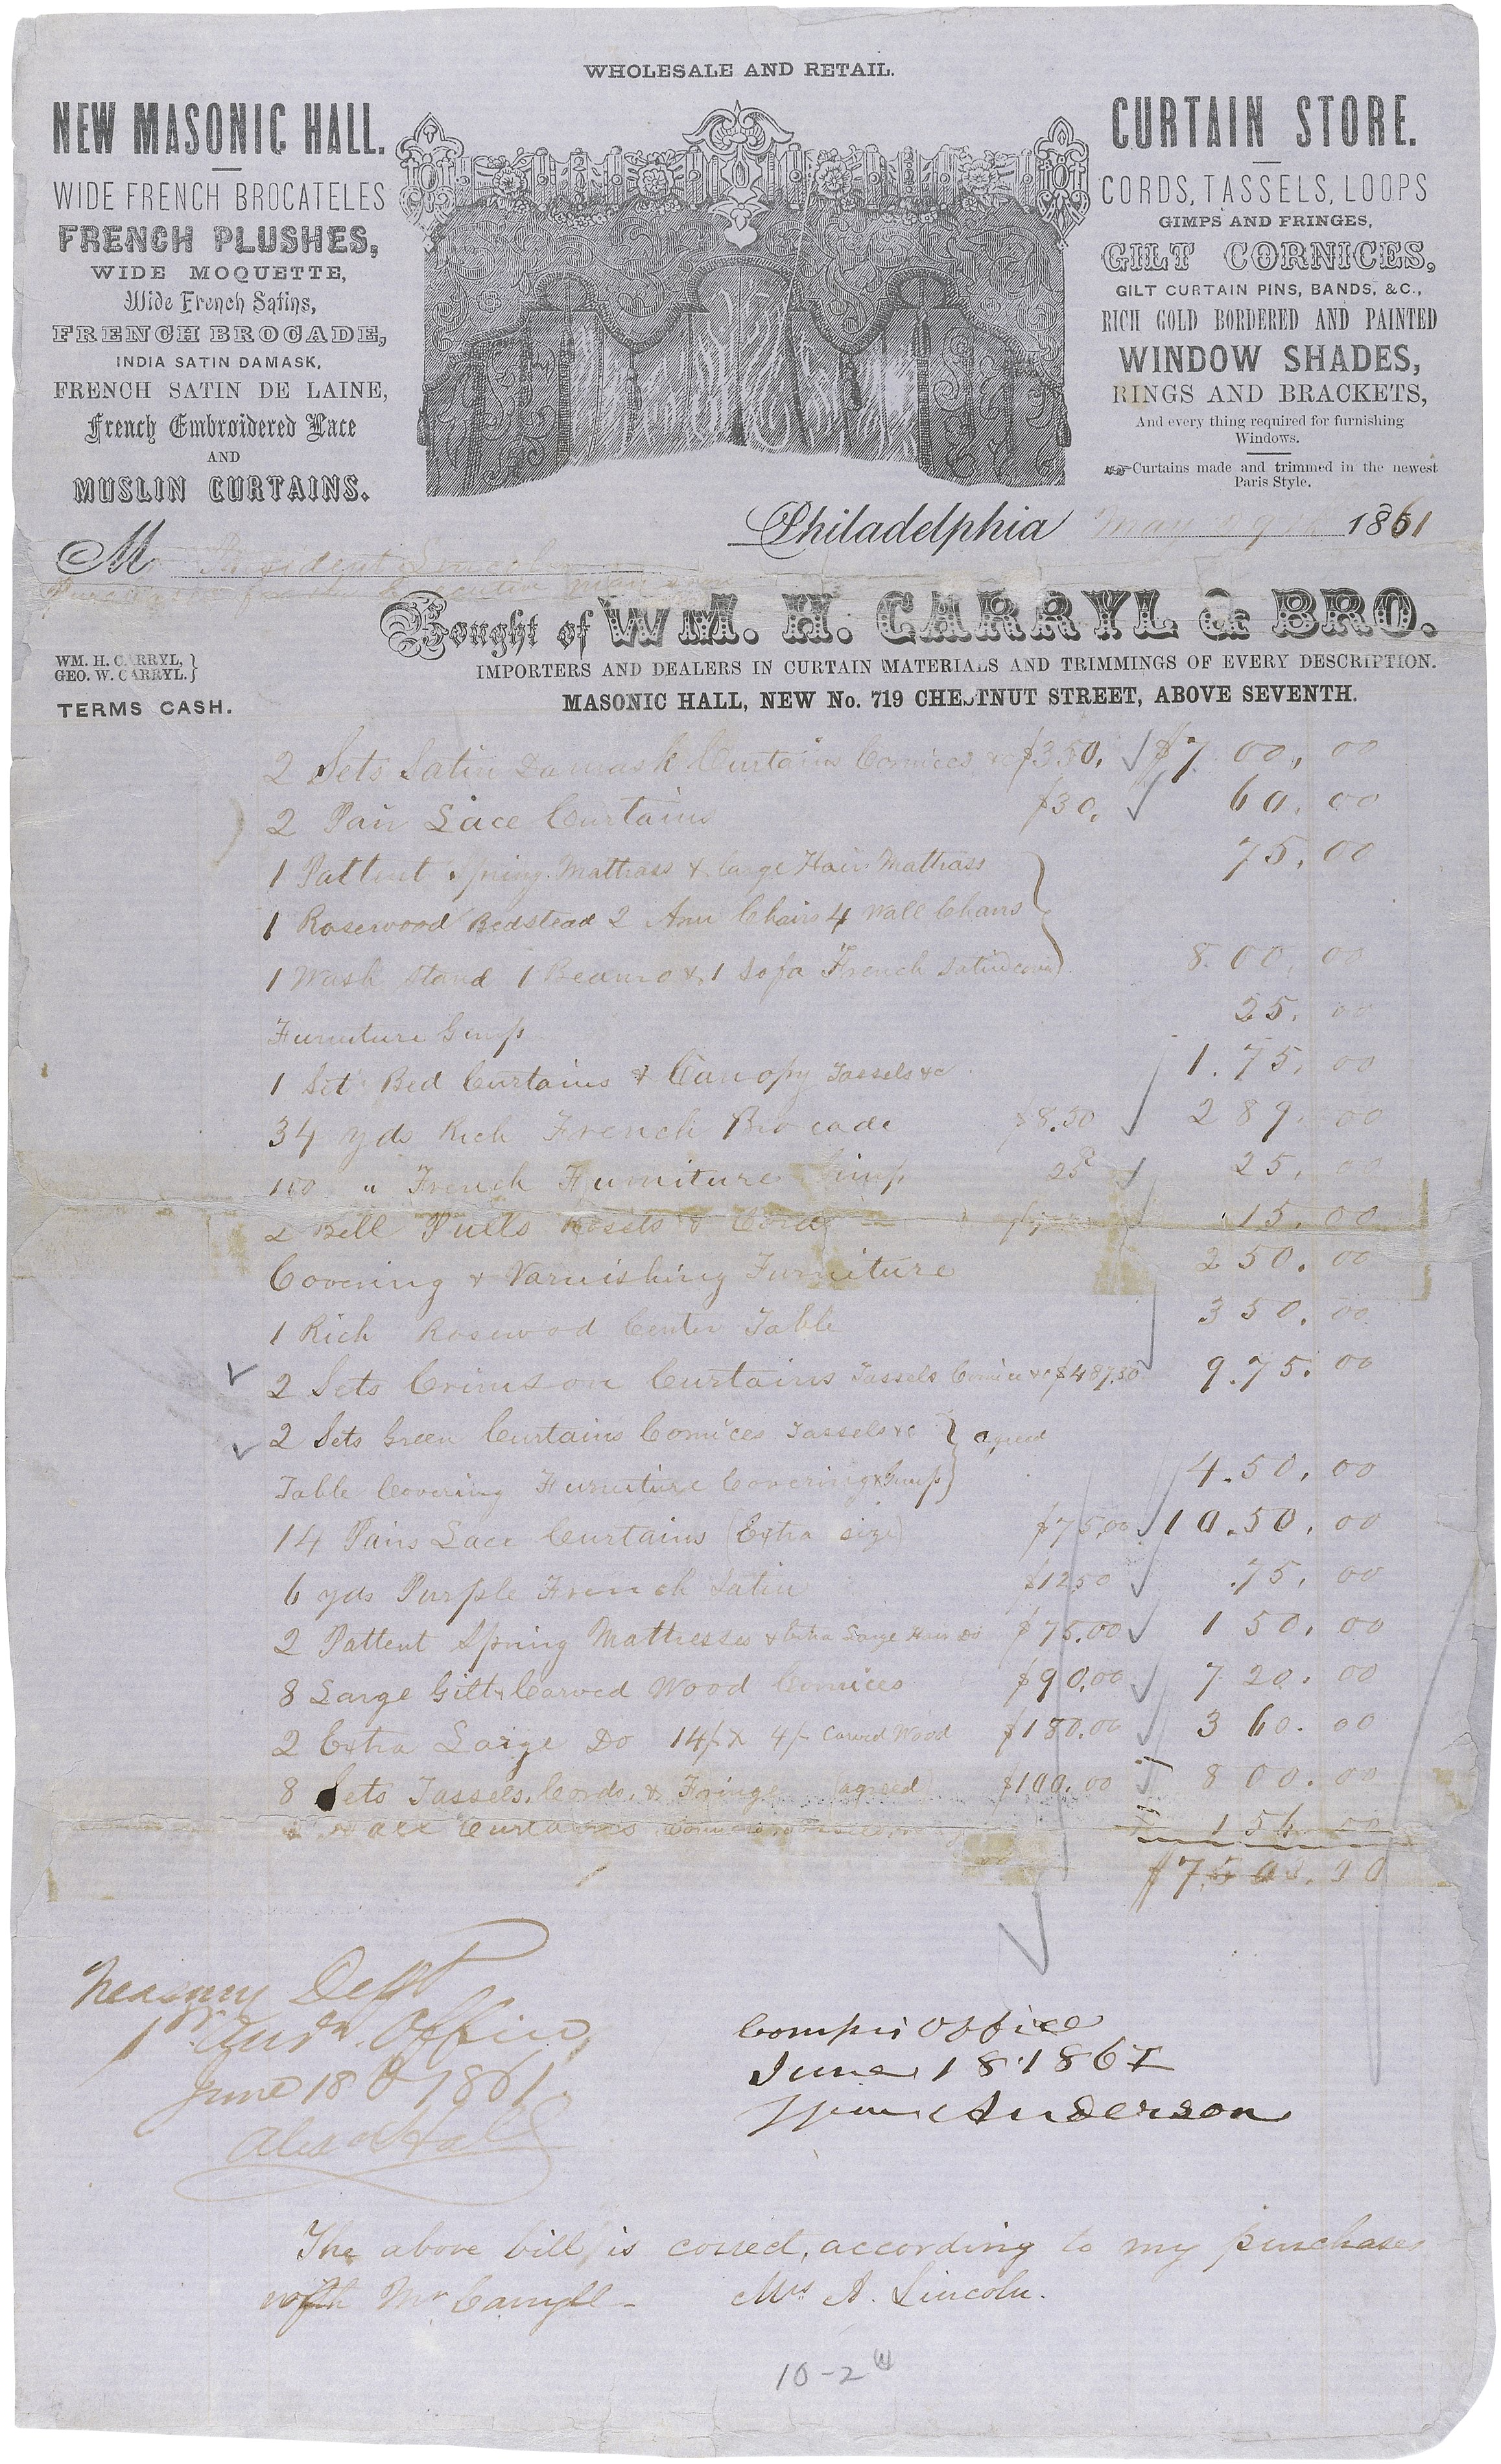 WHOLESALE AND RETAIL.
NEW MASONIC HALL.
WIDE FRENCH BROCATELES
FRENCH PLUSHES,
WIDE MOQUETTE,
Wide French Satins,
FRENCH BROCADE,
INDIA SATIN DAMASK,
FRENCH SATIN DE LAINE,
French Embroidered Lace
AND
MUSLIN CURTAINS.
CURTAIN STORE.
CORDS, TASSELS, LOOPS
GIMPS AND FRINGES,
GILT CORNICES,
GILT CURTAIN PINS, BANDS, &C.,
RICH GOLD BORDERED AND PAINTED
WINDOW SHADES,
RINGS AND BRACKETS,
And every thing required for furnishing
Windows.
Curtains made and trimmed in the newest
Paris Style.
Philadelphia May 29th 1861
M President Lincoln
Purchased for the Executive Mansion
Bought of WM. H. CARRYL & BRO.
WM. H. CARRYL, }
GEO. W. CARRYL. }
IMPORTERS AND DEALERS IN CURTAIN MATERIALS AND TRIMMINGS OF EVERY DESCRIPTION.
TERMS CASH.
MASONIC HALL, NEW No. 719 CHESTNUT STREET, ABOVE SEVENTH.
2 Sets Satin Damask Curtains Cornices &c $350. $700.00
2 Pair Lace Curtains $30. 60.00
1 Pattent Spring Mattrass & large Hair Mattrass 75.00
1 Rosewood Bedstead 2 Arm Chairs 4 Wall Chairs
1 Wash Stand 1 Beauro & 1 Sofa French Satin 800.00
Furniture Gimp 25.00
1 Set Bed Curtains & Canopy Tassels &c. 1.75.00
34 yds Rich French Brocade $8.50 289.00
100 " French Furniture Gimp 25 25.00
2 Bell Pulls Rosets & Cord 15.00
Covering & Varnishing Furniture 250.00
1 Rich Rosewood Center Table 350.00
2 Sets Crimson Curtains Tassels Cornice &c $487.50 9.75.00
2 Sets Green Curtains Cornices Tassels &c } agreed
Table Covering Furniture Covering & Gimp } 4.50.00
14 Pairs Lace Curtains (Extra size) $75.00 10.50.00
6 yds Purple French Satin $12.50 .75.00
2 Pattent Spring Mattresses & Extra Large Hair Do $75.00 150.00
8 Large Gilt & Carved Wood Cornices $90.00 720.00
2 Extra Large Do 14/- x 4/- Carved Wood $180.00 360.00
8 Sets Tassels, Cords, & Fringe (agreed) $100.00 800.00
Curtains
Treasury Dept
1st Audr Office,
June 18th 1861.
Comp's Office
June 18 1861
Anderson
The above bill, is correct, according to my purchases
with Mr Carryll - Mrs A. Lincoln.
10-2